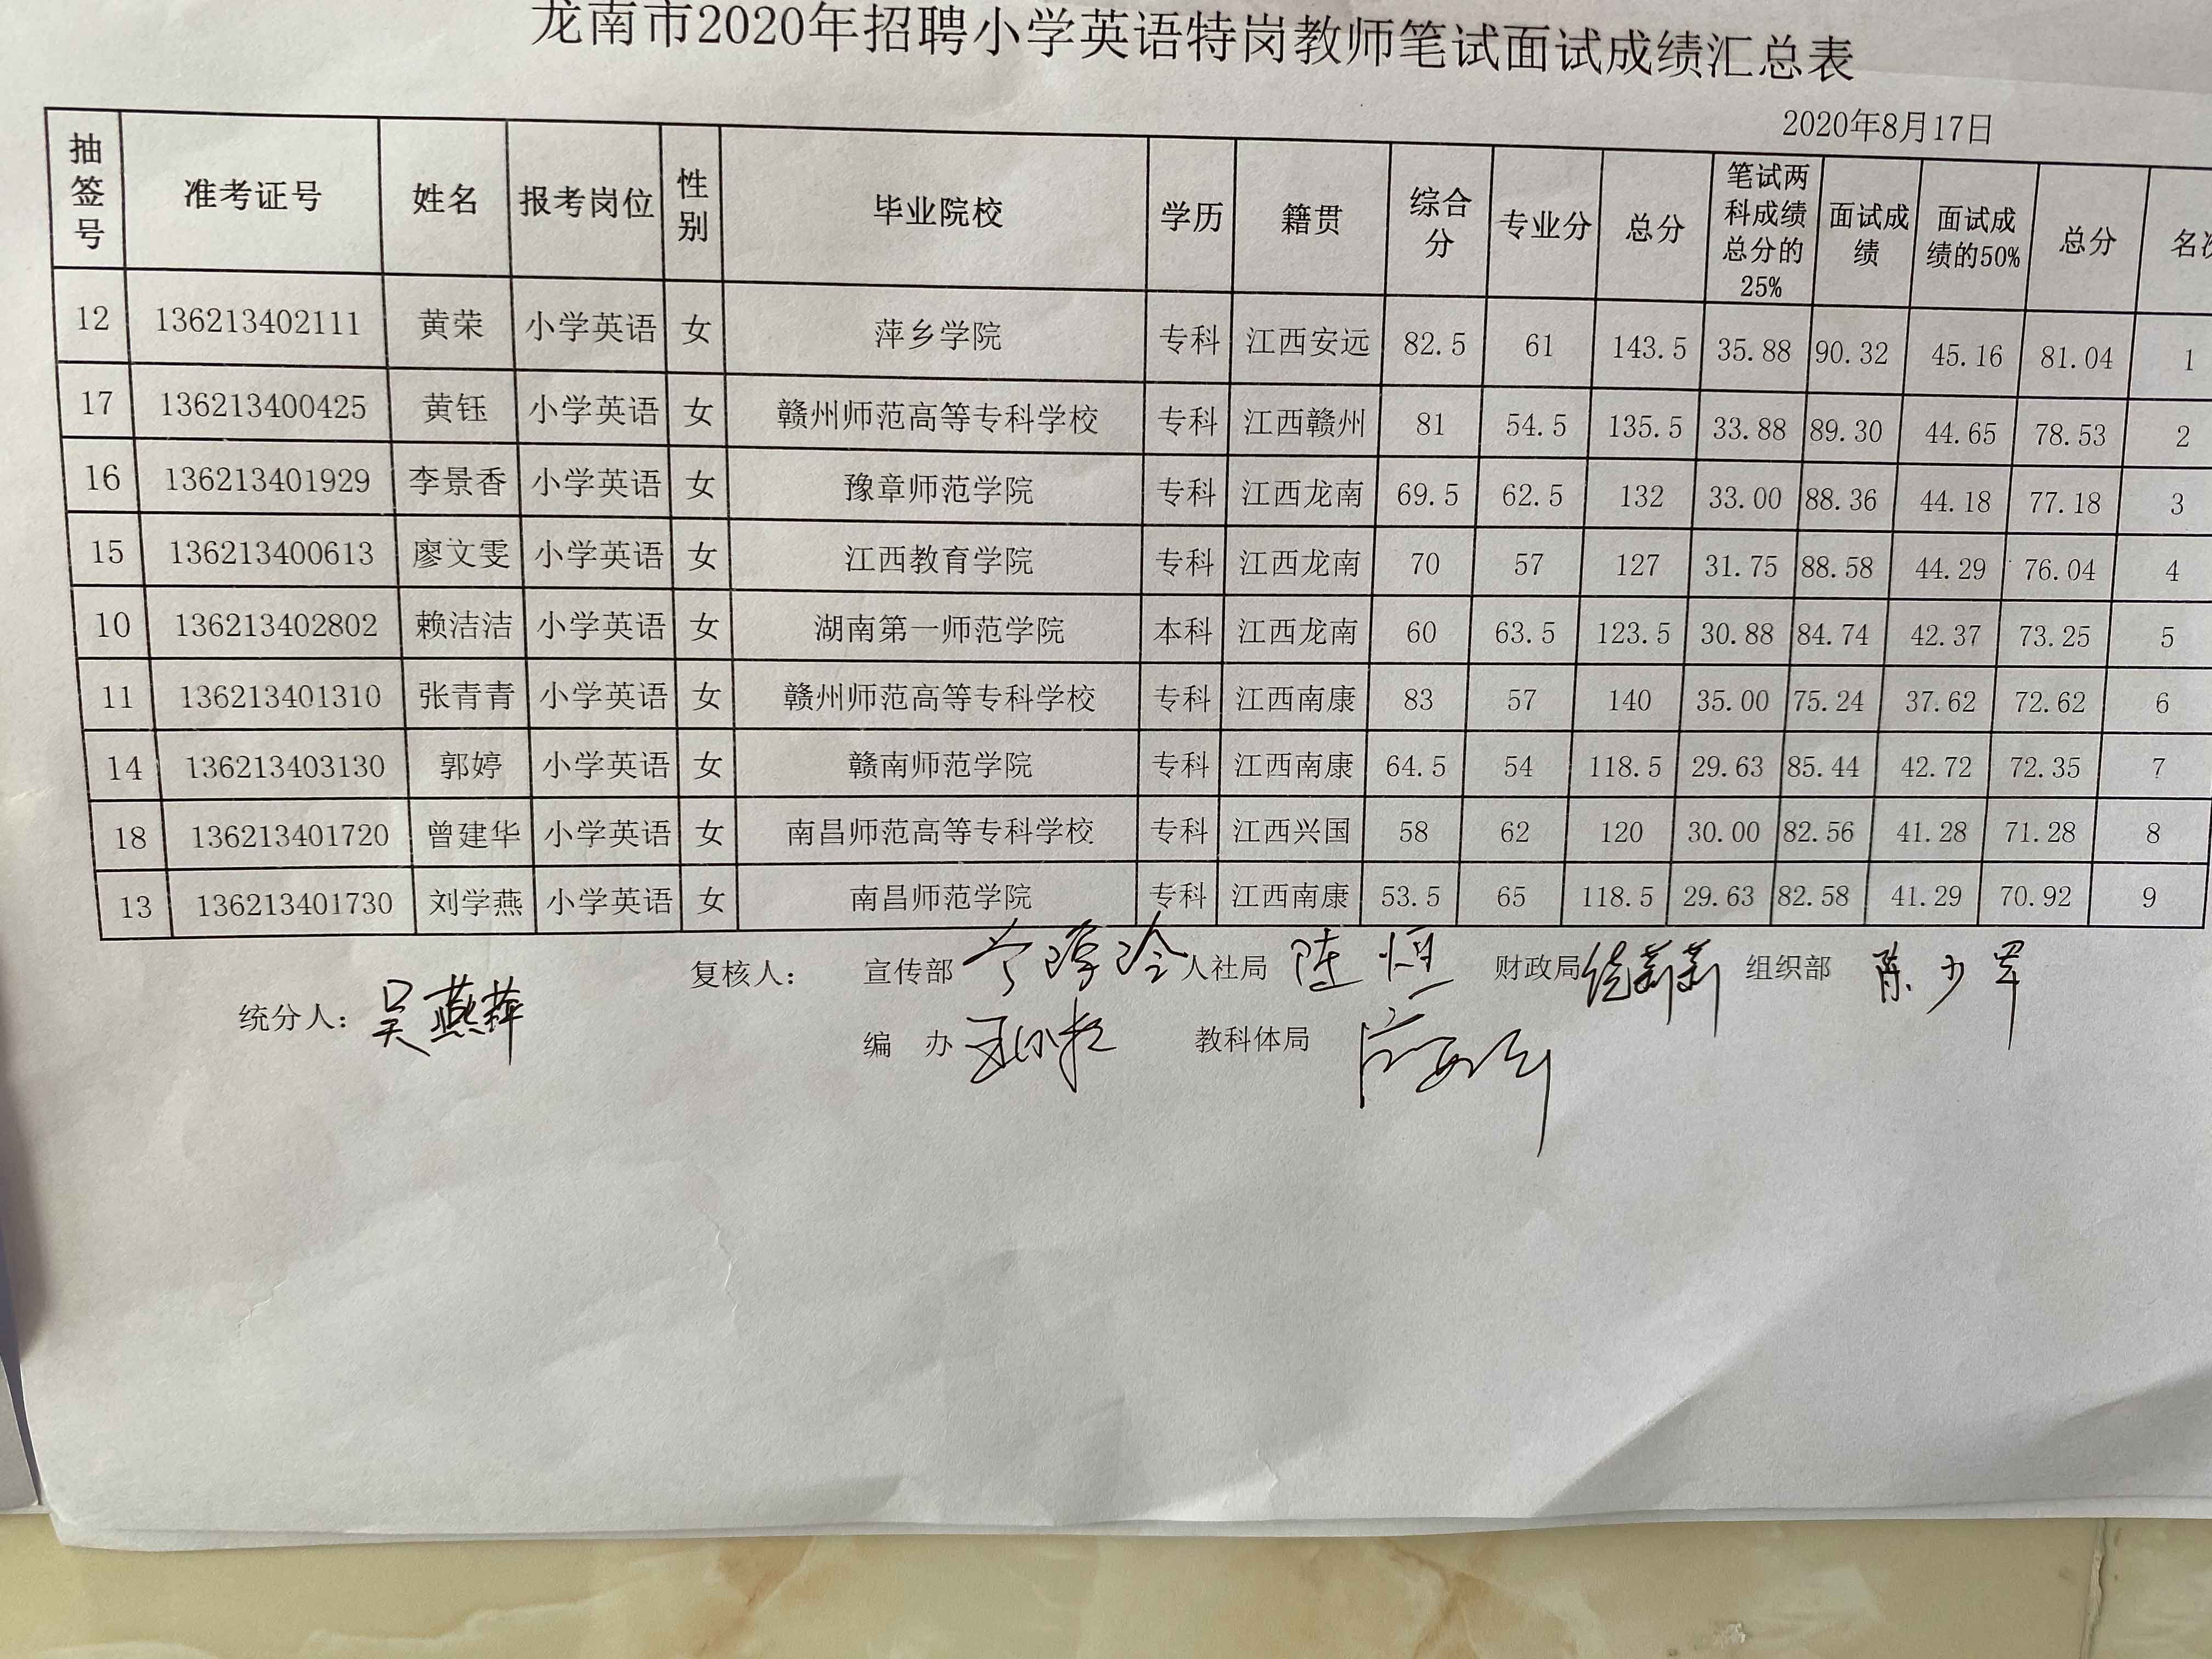 龙南市2020年招聘小学英语特岗教师笔试面试成绩汇总表
2020年8月17日
抽签号 准考证号 姓名 报考岗位 性别 毕业院校 学历 籍贯 综合分 专业分 总分 笔试两科成绩总分的25% 面试成绩 面试成绩的50% 总分 名次
12 136213402111 黄荣 小学英语 女 萍乡学院 专科 江西安远 82.5 61 143.5 35.88 90.32 45.16 81.04 1
17 136213400425 黄钰 小学英语 女 赣州师范高等专科学校 专科 江西赣州 81 54.5 135.5 33.88 89.30 44.65 78.53 2
16 136213401929 李景香 小学英语 女 豫章师范学院 专科 江西龙南 69.5 62.5 132 33.00 88.36 44.18 77.18 3
15 136213400613 廖文雯 小学英语 女 江西教育学院 专科 江西龙南 70 57 127 31.75 88.58 44.29 76.04 4
10 136213402802 赖洁洁 小学英语 女 湖南第一师范学院 本科 江西龙南 60 63.5 123.5 30.88 84.74 42.37 73.25 5
11 136213401310 张青青 小学英语 女 赣州师范高等专科学校 专科 江西南康 83 57 140 35.00 75.24 37.62 72.62 6
14 136213403130 郭婷 小学英语 女 赣南师范学院 专科 江西南康 64.5 54 118.5 29.63 85.44 42.72 72.35 7
18 136213401720 曾建华 小学英语 女 南昌师范高等专科学校 专科 江西兴国 58 62 120 30.00 82.56 41.28 71.28 8
13 136213401730 刘学燕 小学英语 女 南昌师范学院 专科 江西南康 53.5 65 118.5 29.63 82.58 41.29 70.92 9
复核人： 宣传部 人社局 陈恒 财政局 组织部 陈少军
统分人：吴燕萍 编 办 教科体局